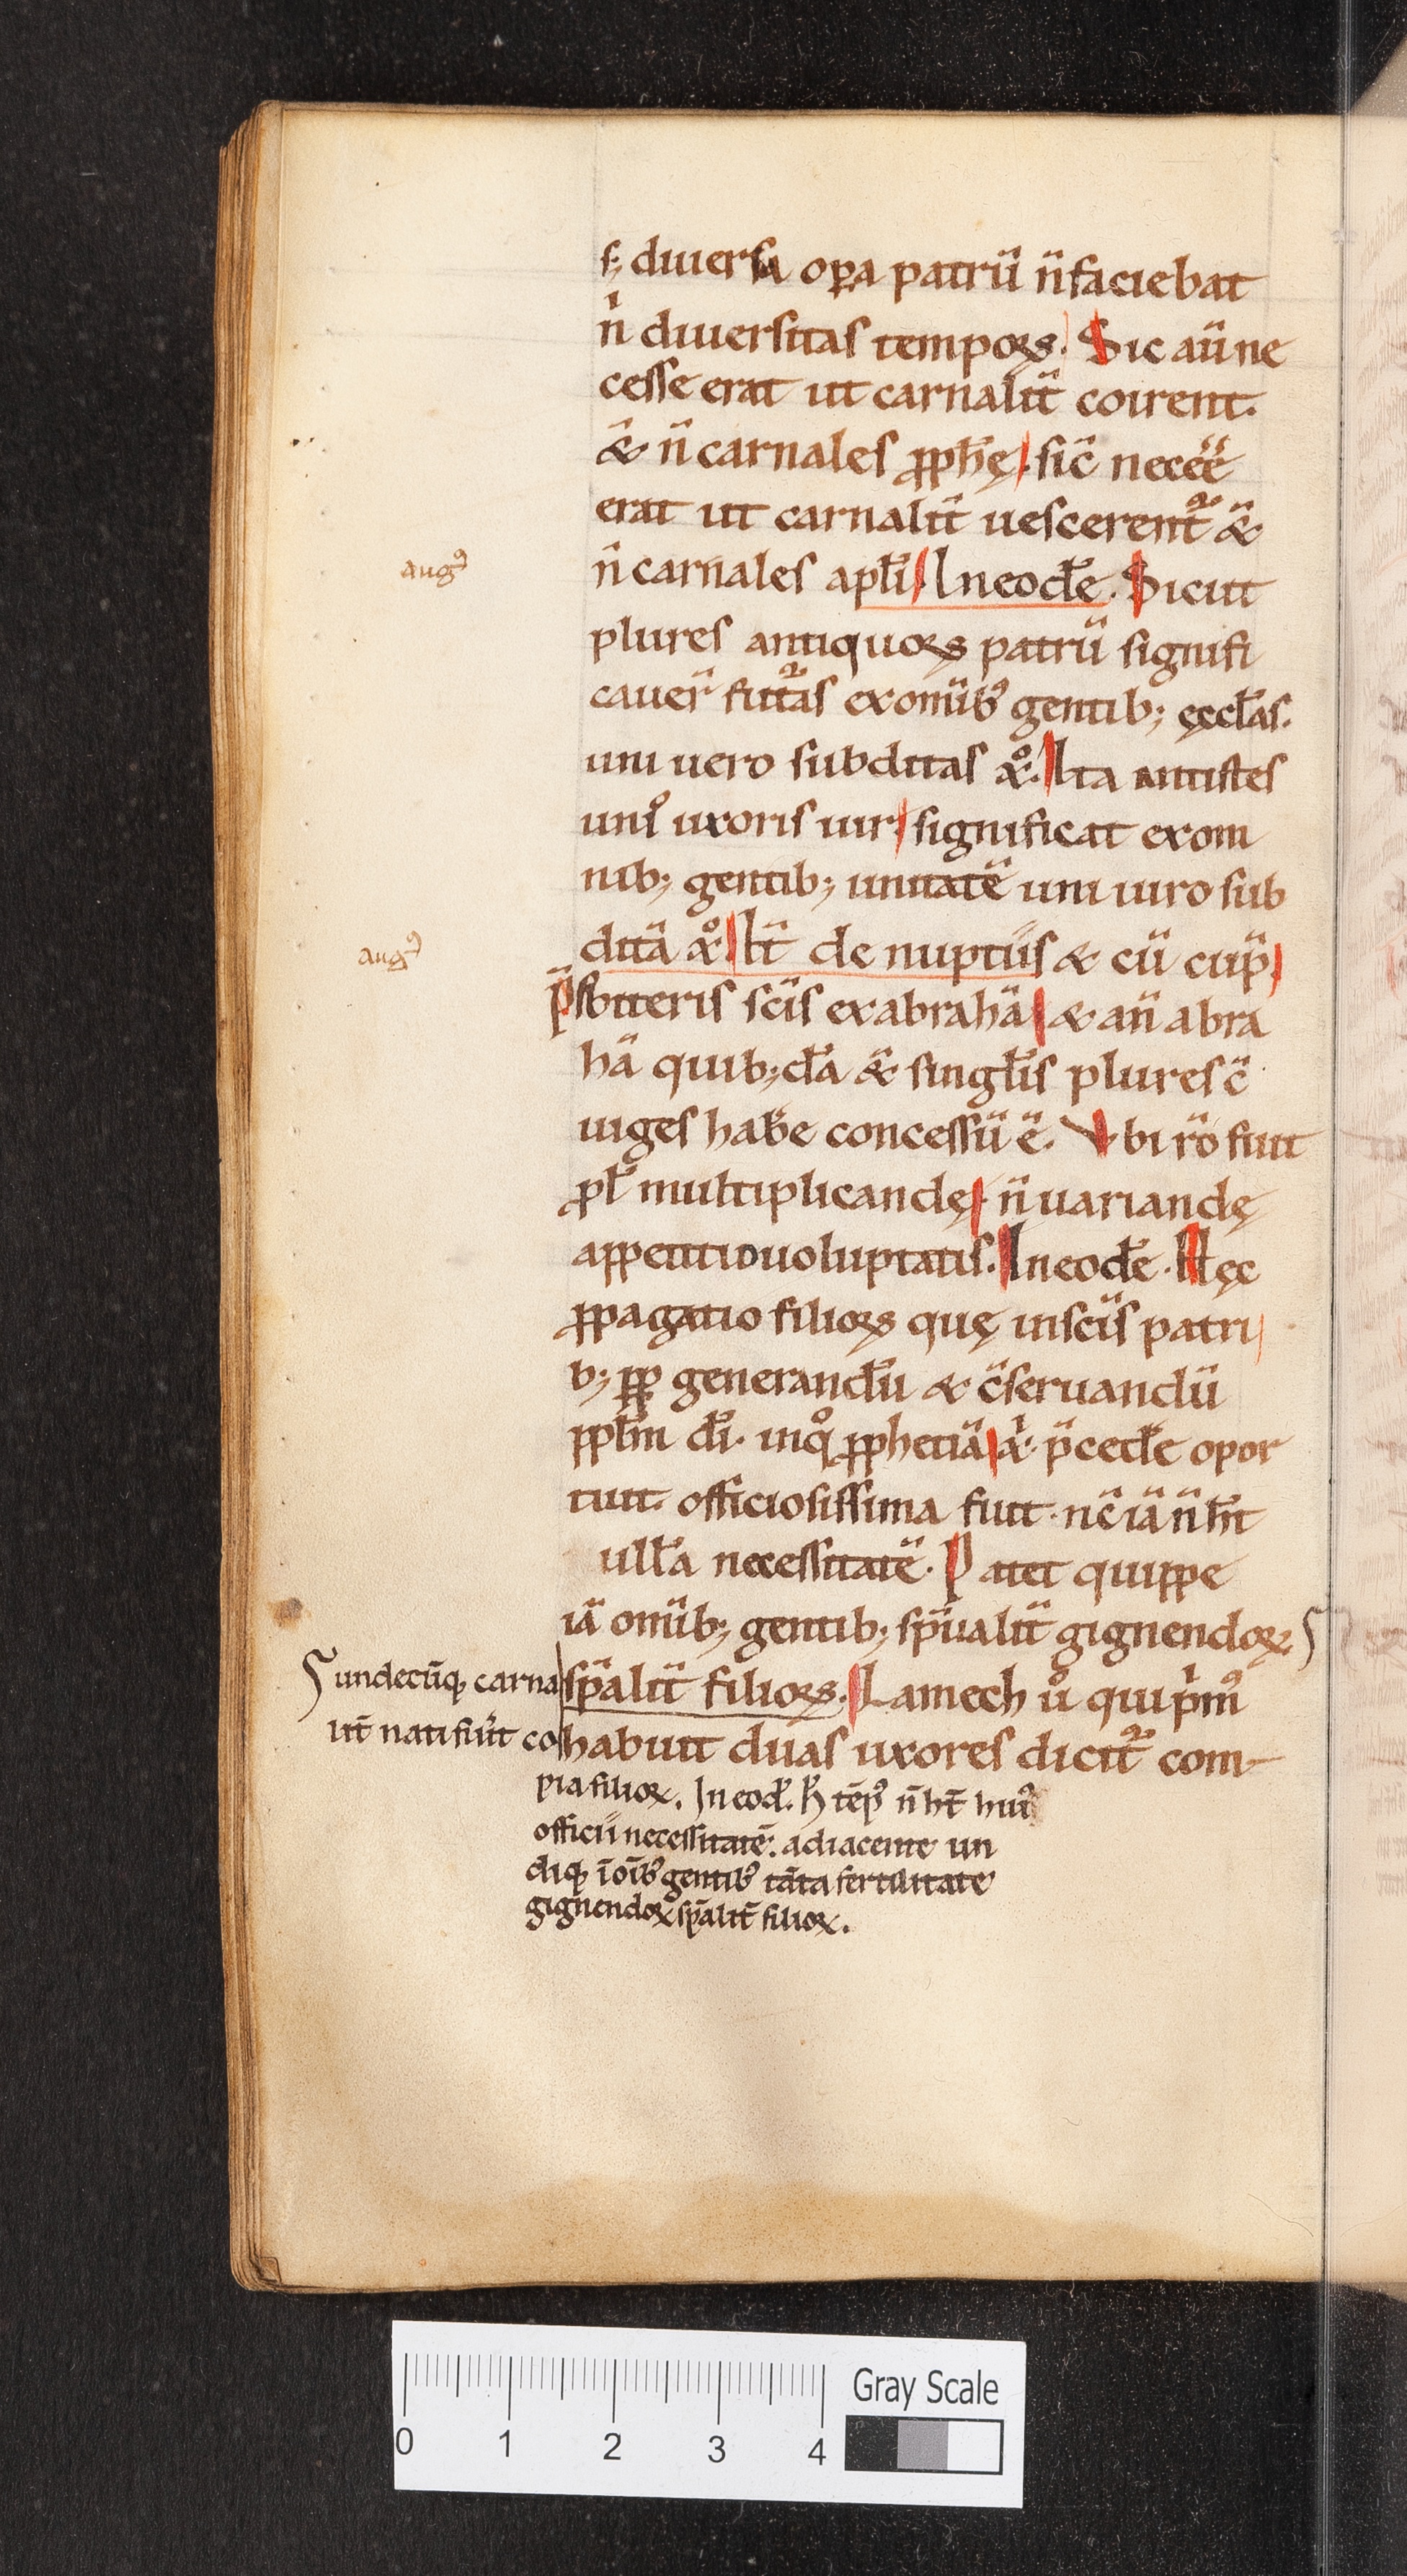 s; diuersa opa patrū n̄ faciebat
n̄ diuersitas temporꝝ. Sic aū ne
cesse erat ut carnalit̄ coirent.
& n̄ carnales ꝓph̄ę. sic̄ necēē
erat ut carnalit̄ uescerent᷑ &
aug⁹
n̄ carnales apl̄i. In eod̄e. Sicut
plures antiquorꝝ patrū signifi
cauer̄ futᷓas ex omīb⁹ gentib; ęccl̄as.
uni uero subditas &. Ita antistes
uni⁹ uxoris uir. significat ex om
nib; gentib; unitatē uni uiro sub
aug⁹
ditā &. It̄ de nuptiis & cū cup̄.
p̄sbiteris sc̄is ex abrahā. & an̄ abra
hā quib; d̄a &̄ singl̄is plures c̄
iuges hab̄e concessū ē. Vbi rō fuit
ꝓl̄ multiplicandę. n̄ uariandę
appetitio uoluptatis. In eod̄e. Hęc
ꝓpagatio filiorꝝ quę in sc̄is patri
b; ꝓp generand̄u & c̄seruandū
ppl̄m d̄i. in q̊ ꝓphetiā & p̄ced̄e opor
tuit officiosissima fuit. nc̄ iā n̄ h̄t
ull̄a necessitatē. Patet quippe
iā omīb; gentib; sp̄ualit̄ gignendoꝝ
undecūq; carna
sp̄alit̄ filiorꝝ. Lamech u̇ qui p̄m⁹
lit̄ nati fiūt co
habuit duas uxores dicit᷑ com-
pia filioꝝ. In eod̄. h̄ tēp⁹ n̄ ht̄ hui⁹
officii necessitatē. adiacente un
diq; ī oīb⁹ gentib⁹ tāta fertilitate
gignendoꝝ sp̄alit̄ filioꝝ.
0 1 2 3 4
Gray Scale